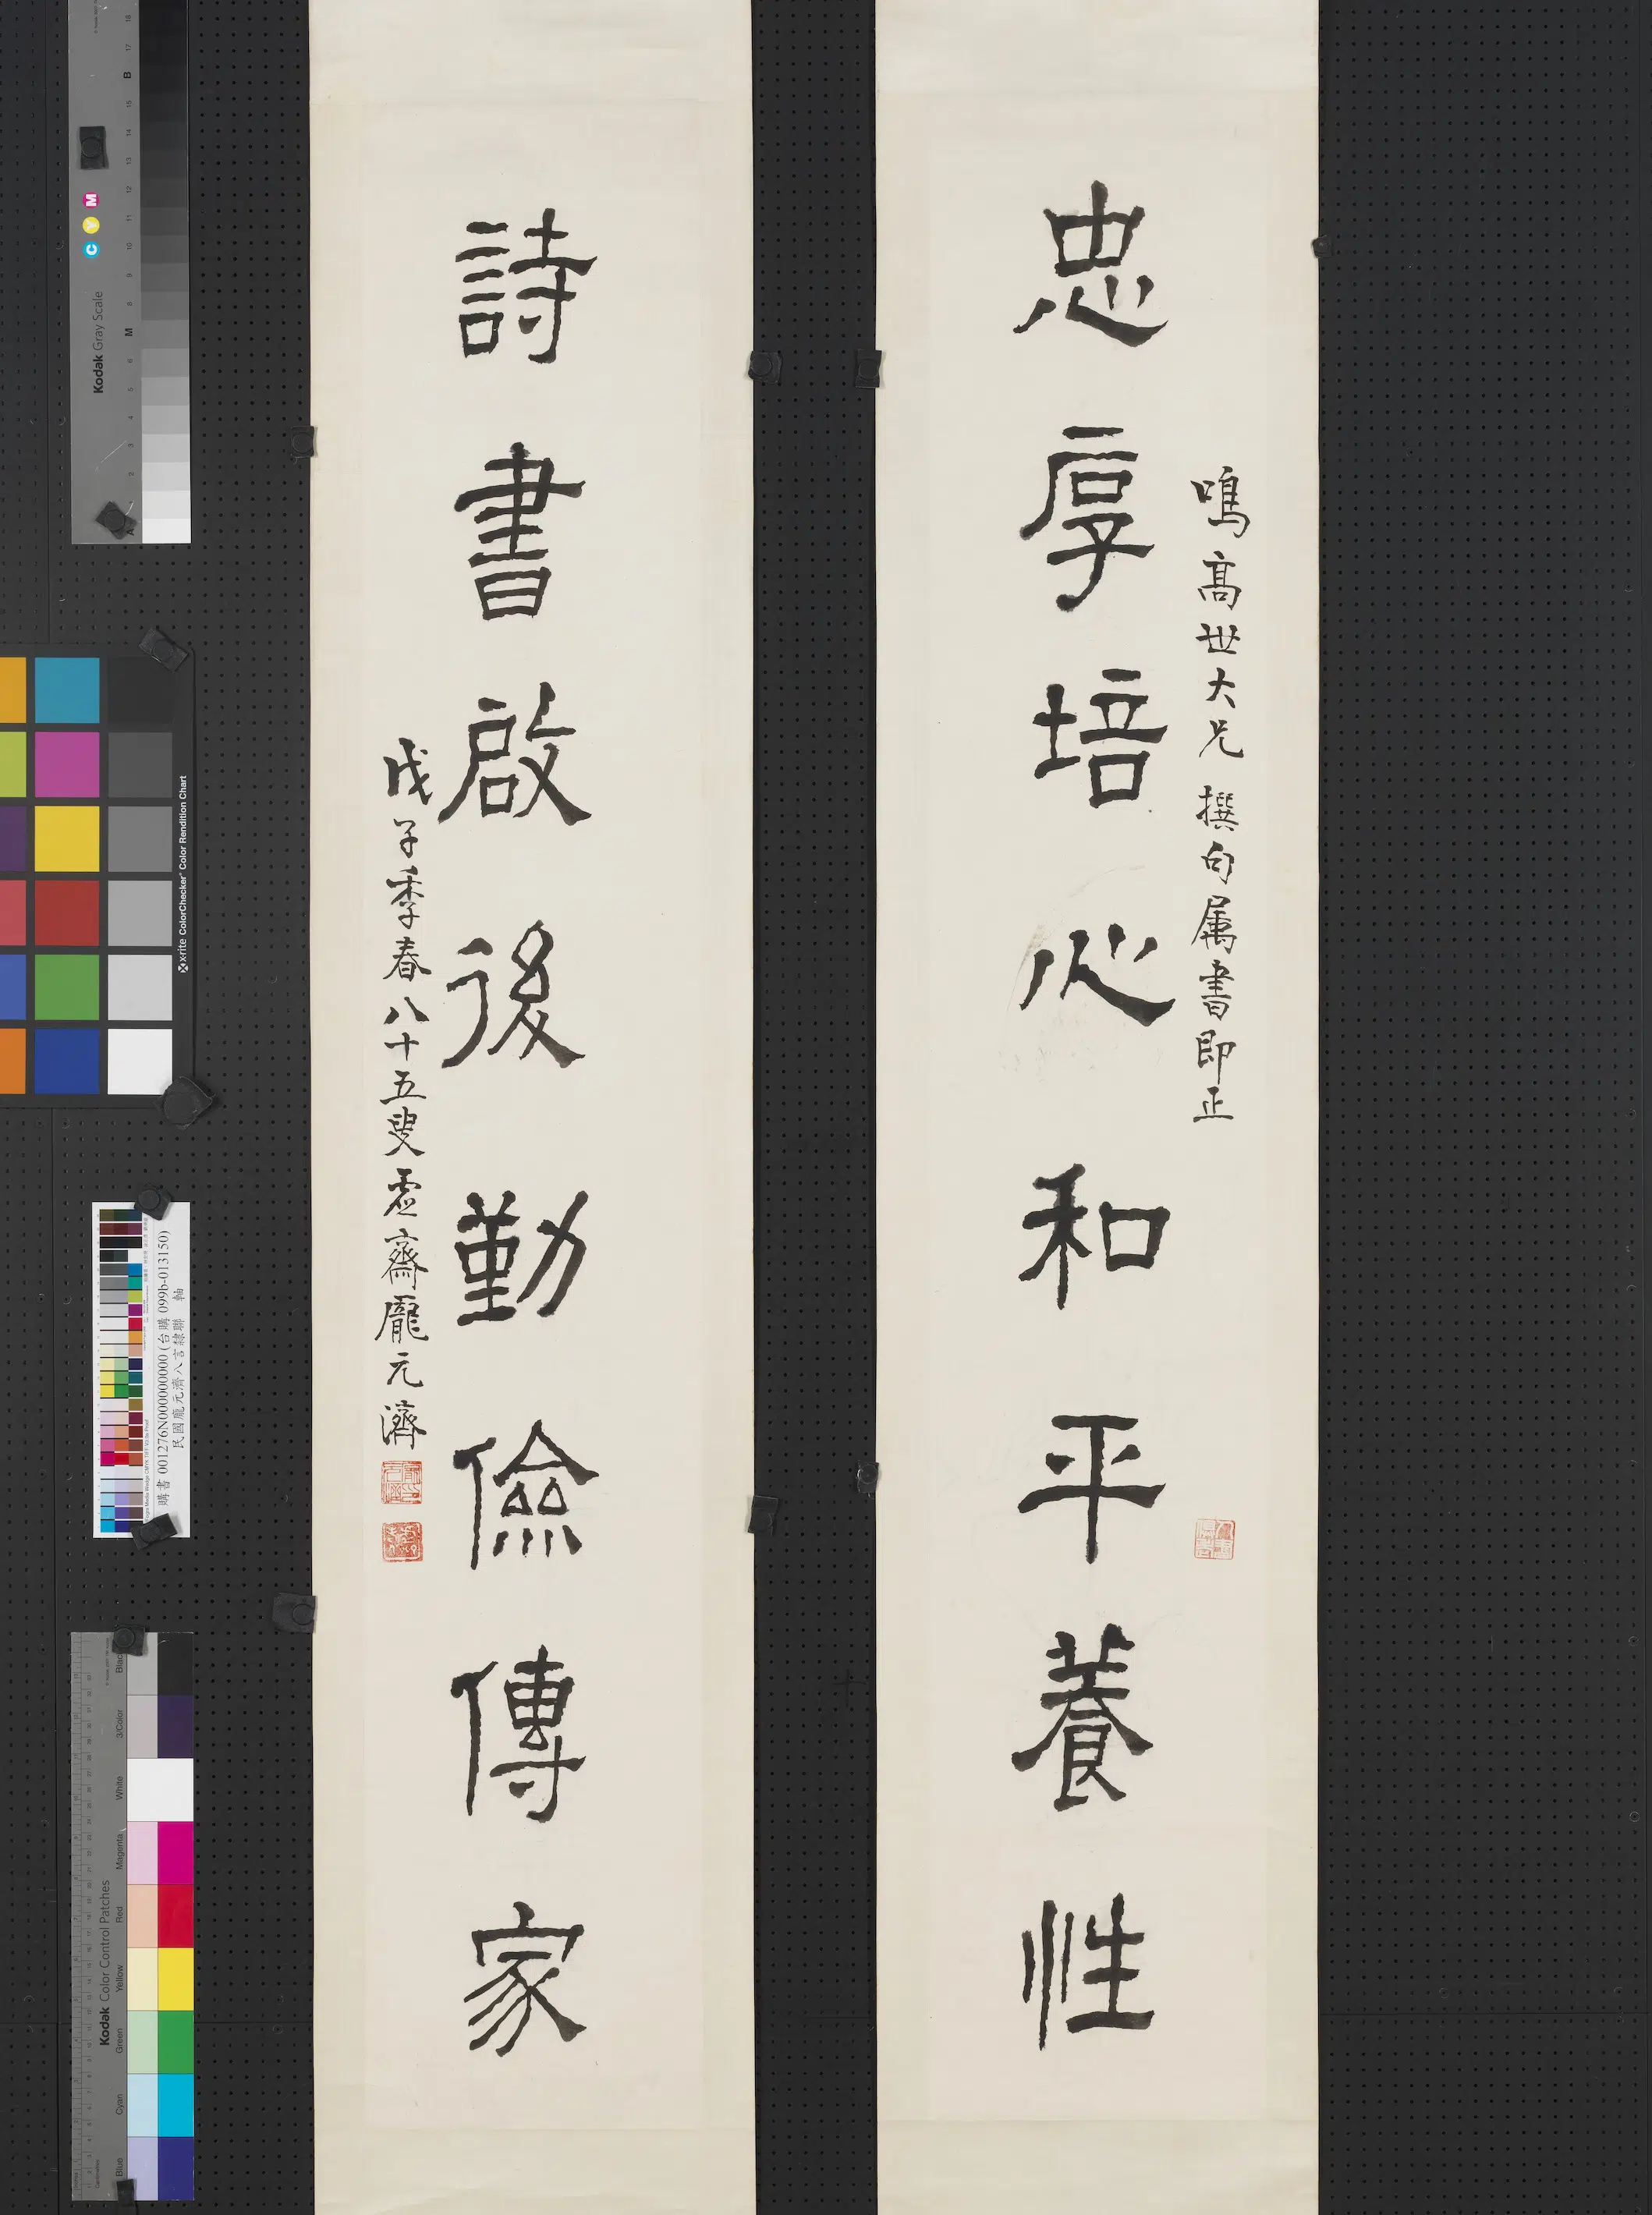 忠厚培心和平養性
鳴高世大兄撰句属書即正
詩書啟後勤儉傳家
戊子季春八十五叟虛齋龐元濟
Kodak Gray Scale
C Y M
x-rite ColorChecker Color Rendition Chart
購書 001276N000000000 (台購 099b-013150)
民國龐元濟八言隸聯 軸
Kodak Color Control Patches
Blue
Cyan
Green
Yellow
Red
Magenta
White
3/Color
Black